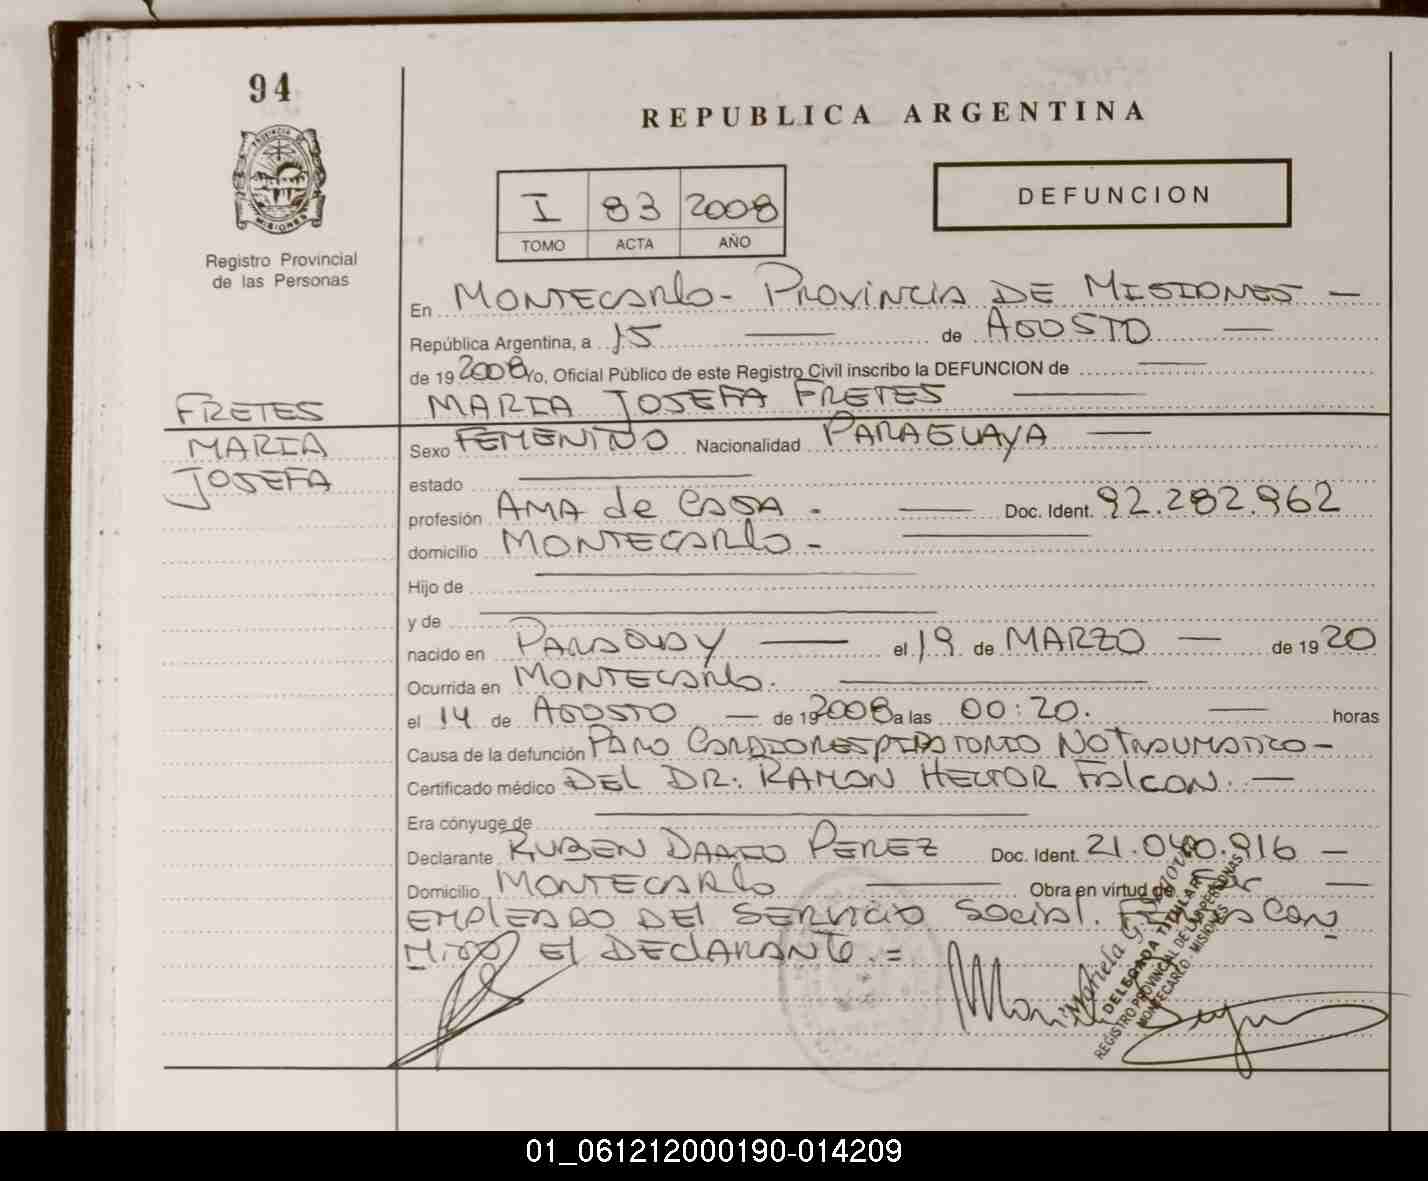 94
REPUBLICA ARGENTINA
PROVINCIA DE
MISIONES
I 83 2008
TOMO ACTA AÑO
DEFUNCION
Registro Provincial
de las Personas
En MONTECARLO - PROVINCIA DE MISIONES —
República Argentina, a 15 — de AGOSTO —
de 19 2008 Yo, Oficial Público de este Registro Civil inscribo la DEFUNCION de —
FRETES
MARIA
JOSEFA
MARIA JOSEFA FRETES —
Sexo FEMENINO Nacionalidad PARAGUAYA —
estado —
profesión AMA de CASA. — Doc. Ident. 92.282.962
domicilio MONTECARLO - —
Hijo de —
y de —
nacido en PARAGUAY — el 19 de MARZO — de 19 20
Ocurrida en MONTECARLO. —
el 14 de AGOSTO — de 19 2008 a las 00:20. — horas
Causa de la defunción PARO CARDIORESPIRATORIO NO TRAUMATICO -
Certificado médico DEL DR: RAMON HECTOR FALCON. —
Era cónyuge de —
Declarante RUBEN DARIO PEREZ Doc. Ident. 21.040.916 —
Domicilio MONTECARLO — Obra en virtud de Ser —
EMPLEADO DEL SERVICIO SOCIAL. CON
MIGO El DECLARANTE. =
Mariela G.
DELEGADA TITULAR
REGISTRO PROVINCIAL DE LAS PERSONAS
MONTECARLO - MISIONES
01_061212000190-014209